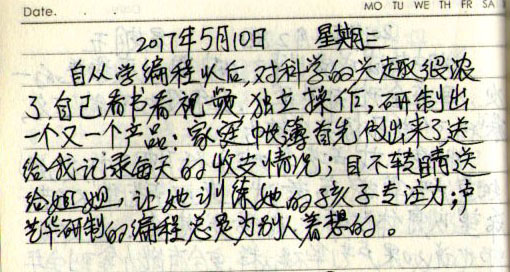 Date.
MO TU WE TH FR SA
2017年5月10日 星期三
自从学编程以后,对科学的兴趣很浓
了,自己看书看视频 独立操作,研制出
一个又一个产品:家庭收簿首先做出来了送
给我记录每天的收支情况;目不转睛送
给姐姐,让她训练她的孩子专注力;卢
艺华研制的编程总是为别人着想的。